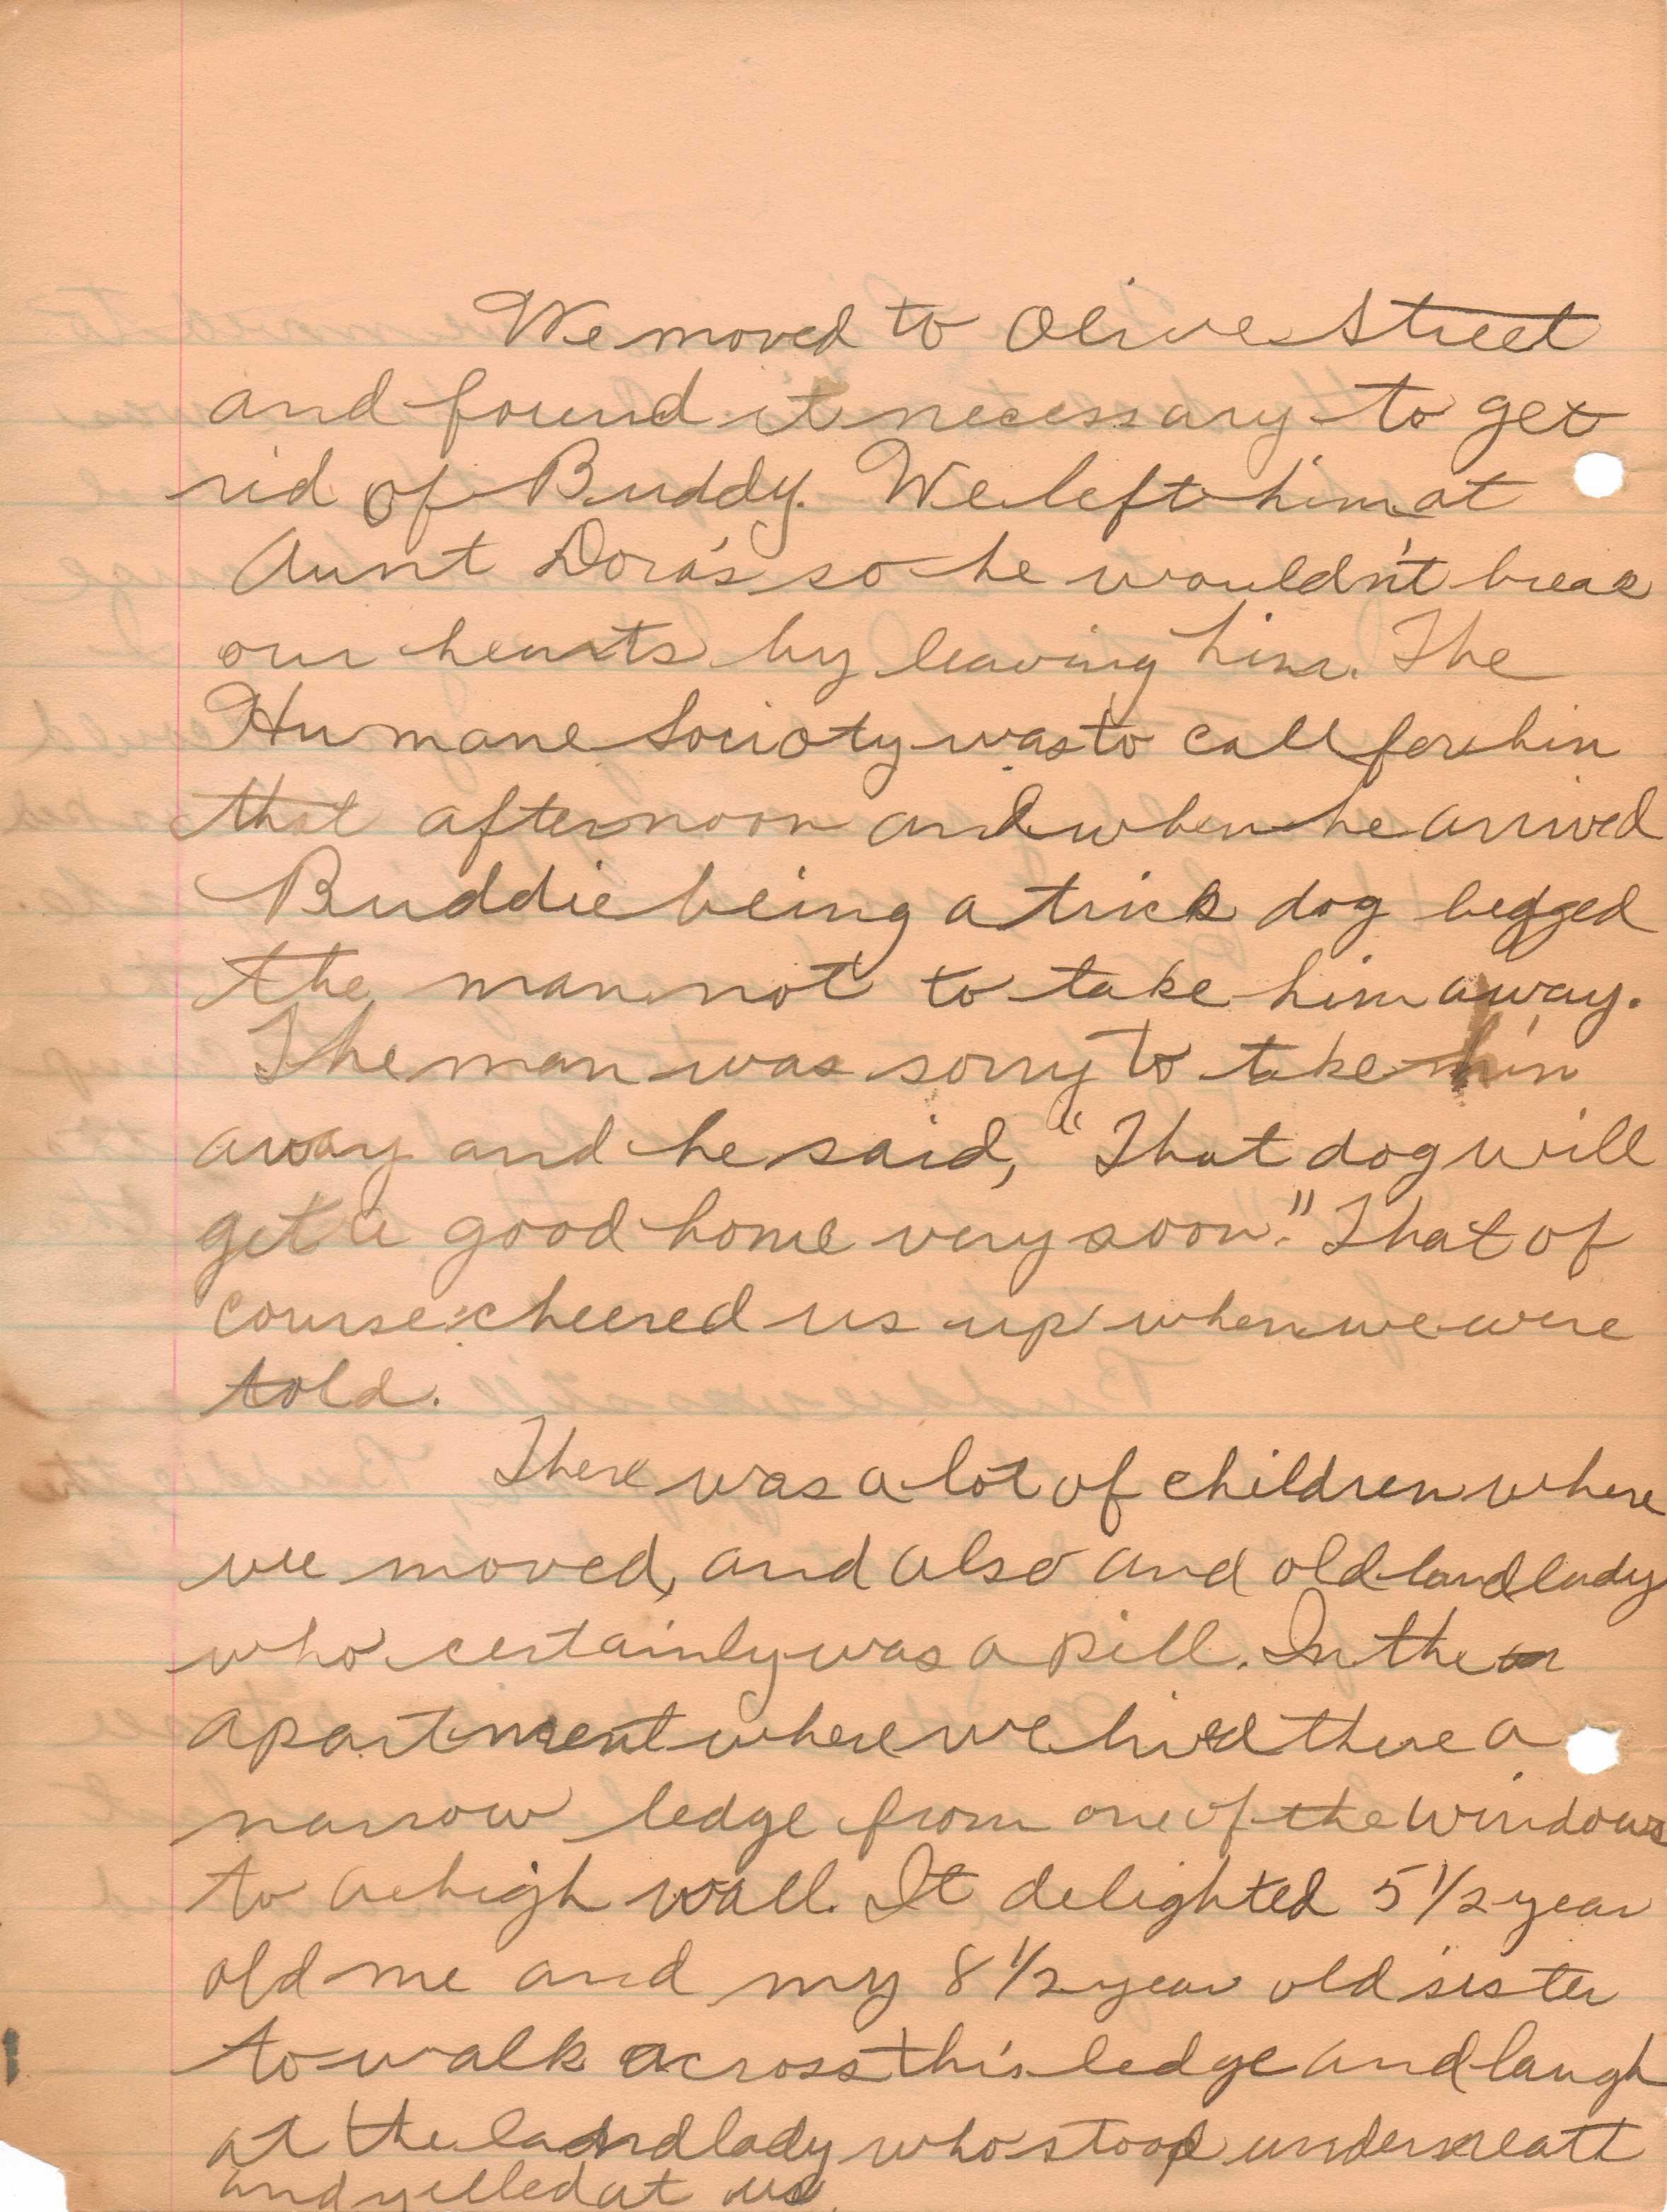 We moved to Olive Street
and found it necessary to get
rid of Buddy. We left him at
Aunt Dora's so he wouldn't break
our hearts by leaving him. The
Humane Socioty was to call for him
that afternoon and when he arrived
Buddie being a trick dog begged
the man not to take him away.
The man was sorry to take him
away and he said, "That dog will
get a good home very soon." That of
course cheered us up when we were
told.
There was a lot of children where
we moved, and also and old landlady
who certainly was a pill. In the
apartment where we lived there a
narrow ledge from one of the windows
to a high wall. It delighted 5 1/2 year
old me and my 8 1/2 year old sister
to walk across this ledge and laugh
at the landlady who stood underneath
and yelled at us.